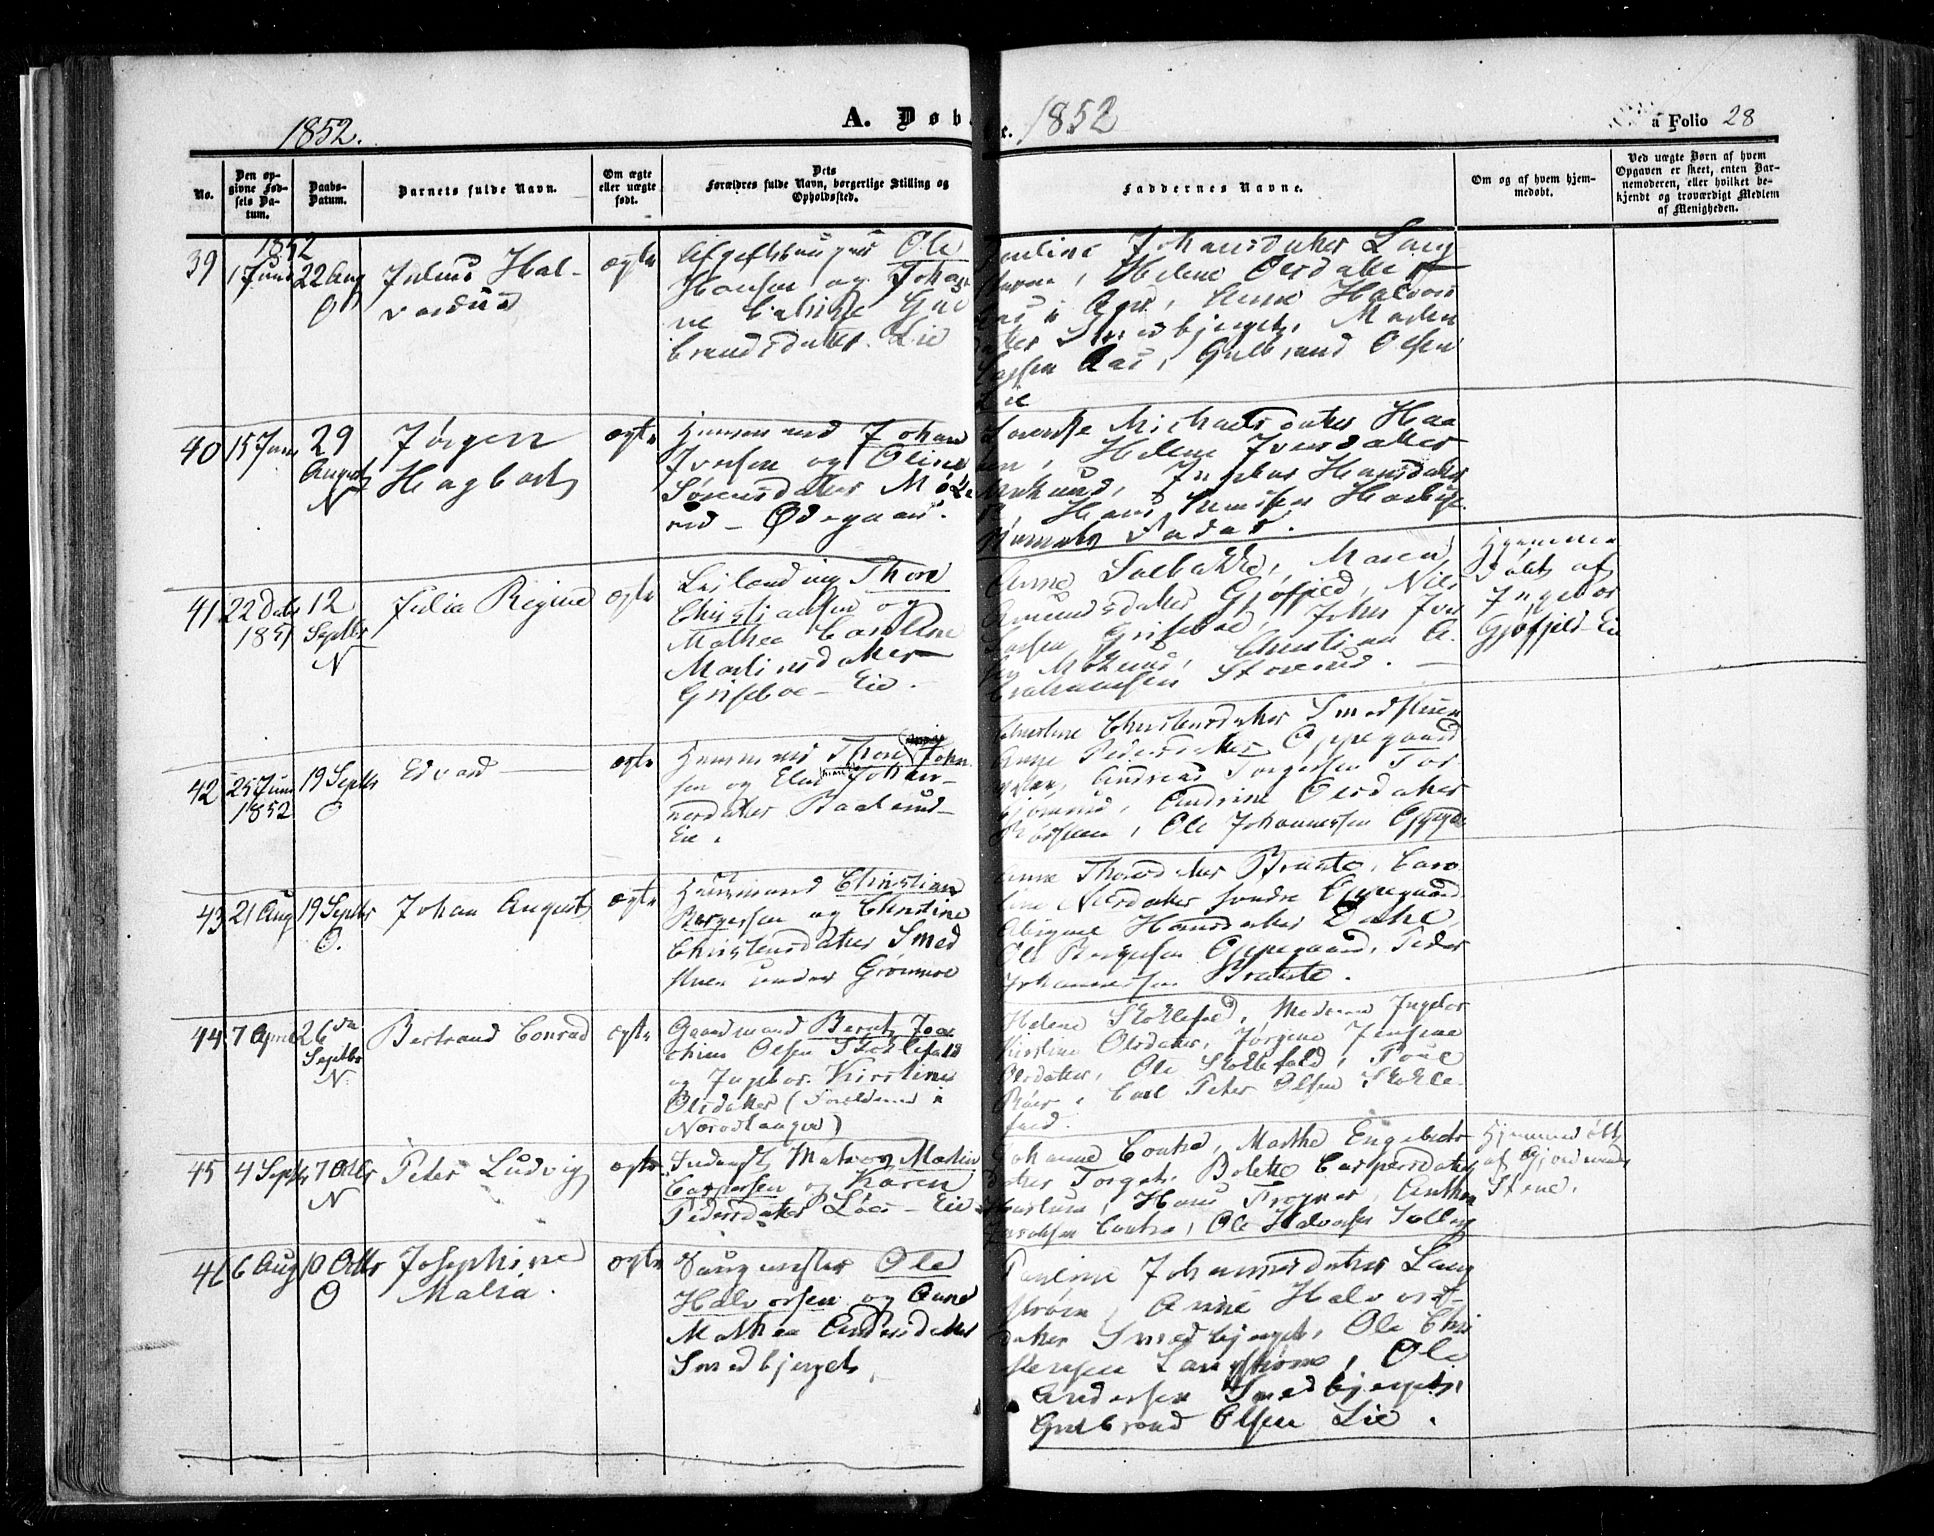 1852.
A. Døb
e. 1852
a Folio 28
No.
Den op-
givne Fød-
sels Da-
tum.
Daabs-
Datum.
Barnets fulde Navn.
Om ægte
eller uægte
født.
Dets
Forældres fulde Navn, borgerlige Stilling og
Opholdssted.
Faddernes Navne.
Om og af hvem hjem-
medøbt.
Ved uægte Børn af hvem
Opgaven er skeet, enten Bar-
nemoderen, eller hvilket be-
kjendt og troværdigt Medlem
af Menigheden.
39
1852
1 Juni
22 Aug
O
Julius Hal-
vardus
ægte
Ole
Hansen og Johan
ne
brandsdatter Lie
Pauline Johansdatter Lang
Helene Olsdatter
Anne Halvors
datter Smedbjerget, Martin
Aas, Gulbrand Olsen
Lie
40
15 Juni
29
August
N
Jørgen
Hagbart
ægte
Huusmand Johan
Iversen og Oline
Sørensdatter
rud - Ødegaard.
Michaelsdatter Haa
Helene Iversdatter
Ingebor Hansdatter
Hans
Barnets Fader.
41
22 Decbr
1851
12
Septbr
N
Julia Regine
ægte
Leilænding Thore
Christiansen og
Mathea Caroline
Martinsdatter
Griseboe - Eie.
Anne Solbakke, Maren
Amundsdatter Gjøfjeld, Nils
Larsen Griseboe, Johs Iver
Christian A
brahamsen Storerud.
Hjemme
døbt af
Ingebor
Gjøfjeld-Eie
42
25 Juni
1852
19 Septbr
O
Edvard
ægte
Huusmand Thore Johan
sen og Elen Johan-
nesdatter Baalerud-
Eie.
Christine Christensdatter Smedstuen
Anne Pedersdatter Oppegaard
Andreas Torgersen Tor
Andrine Olsdatter
Ole Johannessen Oppegd
43
21 Aug
19 Septbr
O.
Johan August
ægte
Huusmand Christian
Børgersen og Christine
Christensdatter Smed
stuen under Grønmoe
Anne Thoresdatter Braate, Caro
line Nilsdatter søndre Oppegaard
Abigael Hansdatter Dahl
Ole Børgersen Oppegaard, Peder
Johannessen Braate.
44
7 April
26de
Septbr
N.
Bertrand Conrad
ægte
Gaardmand Bernt Joa
chim Olsen Stoklefald
og Ingebor Kirstine
Olsdatter (Forældrene i
Næroslanger)
Helene Stoklefald, Moderen Ingebor
Kirstine Olsdatter, Jørgine Jensine
Olsdatter, Ole Stoklefald, Poul
Røer, Carl Peter Olsen Stokle-
fald.
45
4 Septbr
7 Octbr
N
Peter Ludvig
ægte
Inderst Matros Martin
Caspersen og Karen
Pedersdatter Løes - Eie
Johanne Contra, Marthe Engebrets
datter Torget, Bolette Caspersdatter
Haslum, Hans Frogner, Anthon
Jacobsen Contra, Ole Halvorsen Solberg
Hjemmedøbt
af Gjordmoder
Stene.
46
6 Aug
10 Octbr
O
Josephine
Malia.
ægte
Saugmester Ole
Halvorsen og Anne
Mathea Andersdatter
Smedbjerget,
Pauline Johannesdatter Lang
strøm, Anne Halvors-
datter Smedbjerget, Ole Chri
stensen Langstrøm, Ole
Andersen Smedbjerget,
Gulbrand Olsen Lie.